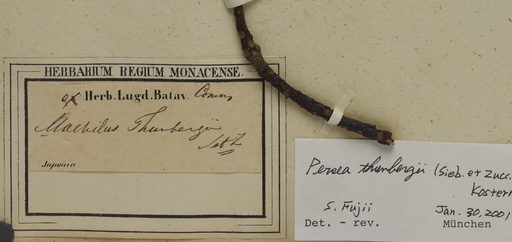 HERBARIUM REGIUM MONACENSE.
ex Herb. Lugd. Batav. Comm
Machilus Thunbergii
S et Z
Japonia
Persea thunbergii (Sieb. et Zucc.
Kosterm
S. Fujii Jan. 30, 2001
Det. - rev. München